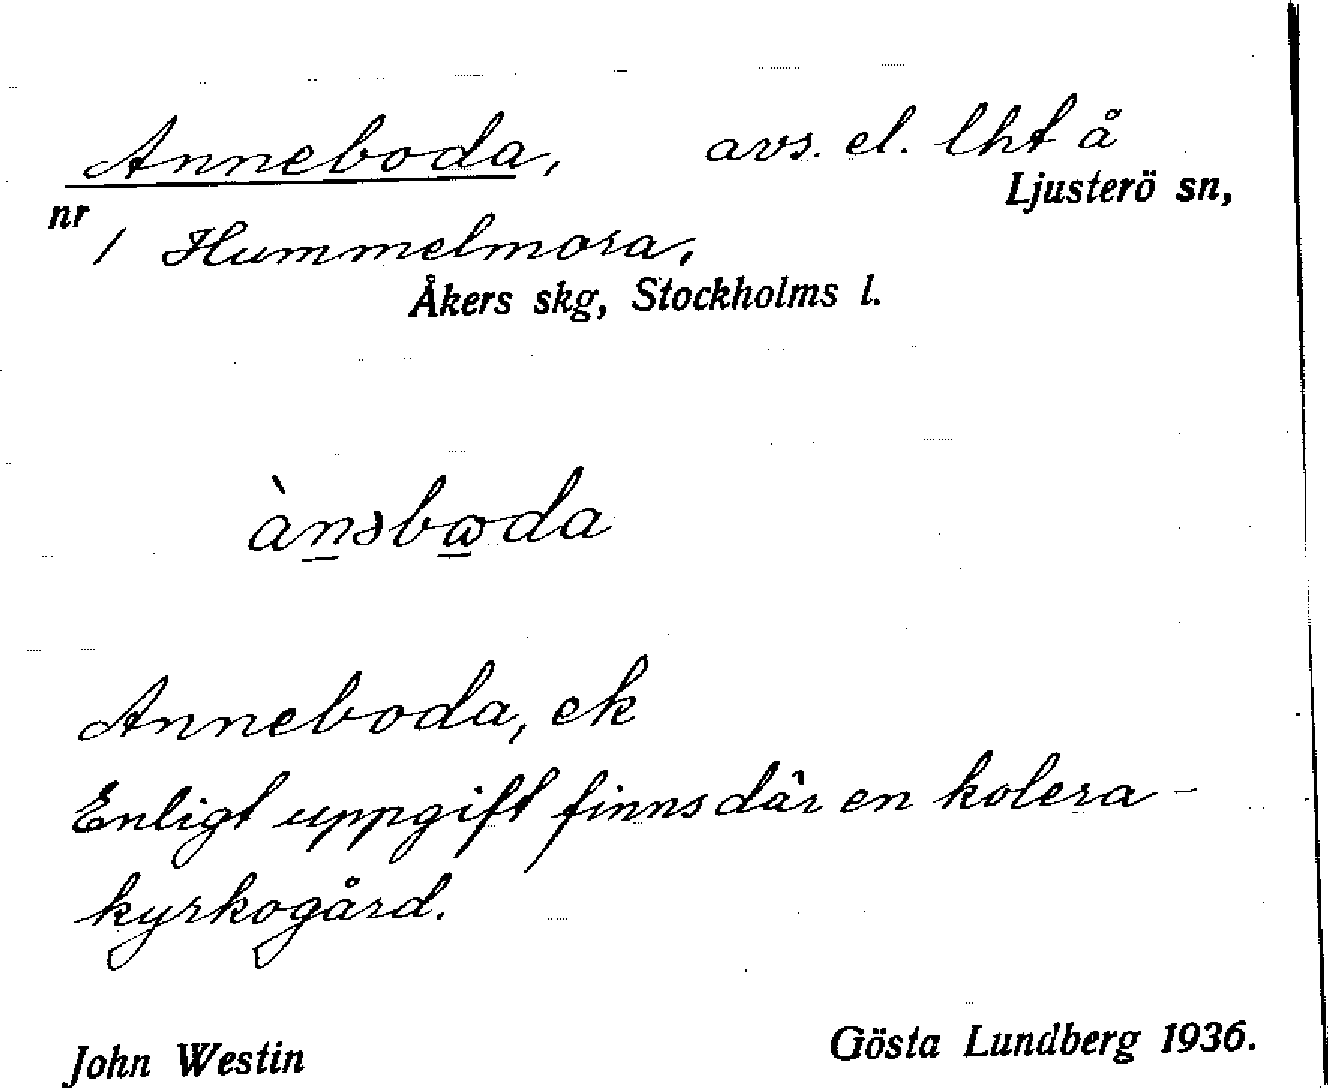 Anneboda, avs. el. lht å
Ljusterö sn,
nr 1 Hummelmora,
Åkers skg, Stockholms l.
àn̲əbꞷ̲da
Anneboda, ek
Enligt uppgift finns där en kolera-
kyrkogård.
John Westin Gösta Lundberg 1936.